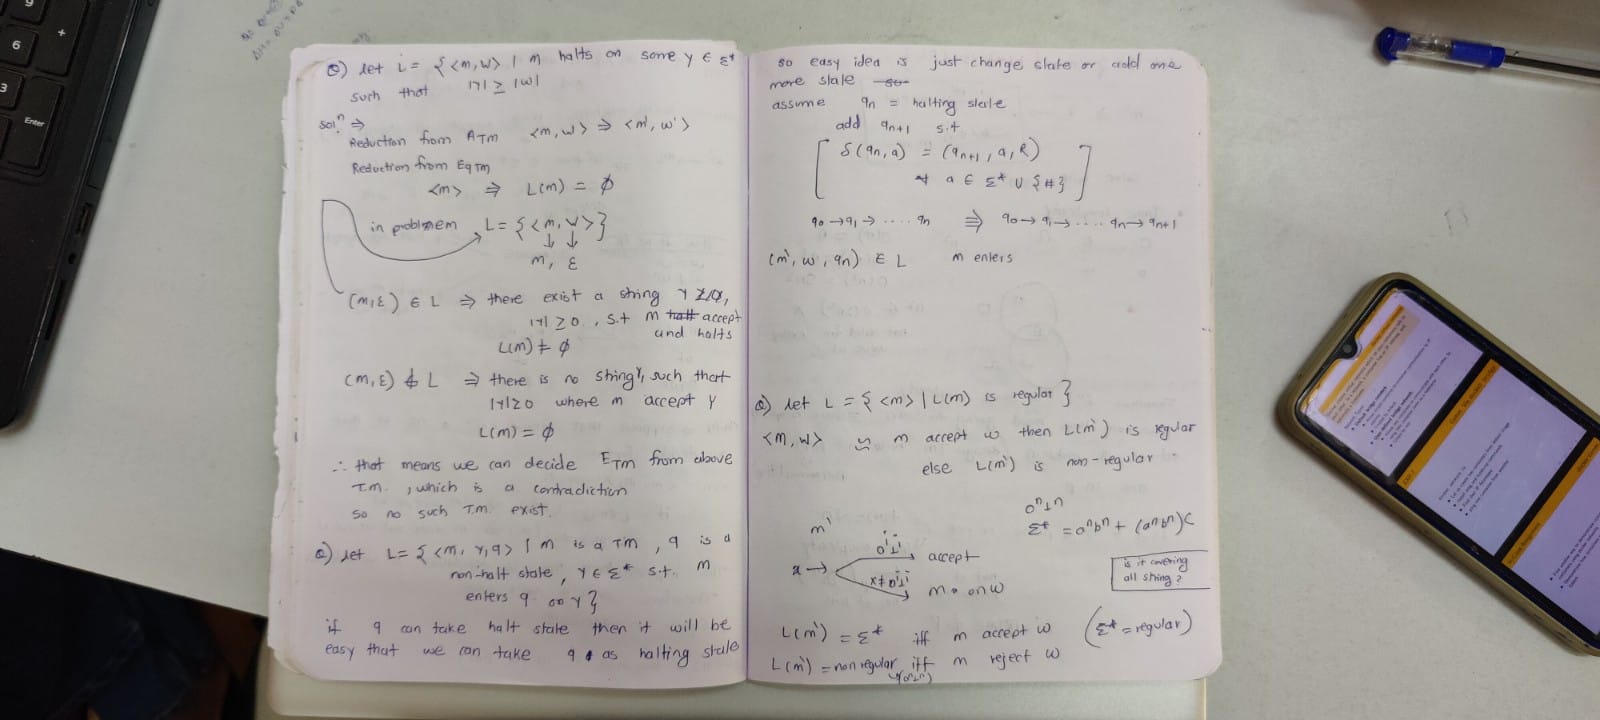 Q) let L = {<m,w> | m halts on some y ∈ Σ*
such that |y| ≥ |w|
solⁿ ⇒
Reduction from ATM <m,w> ⇒ <m',w'>
Reduction from EqTM
<m> ⇒ L(m) = ϕ
in problem L = {<m, y>}
↓ ↓
m, ε
(m,ε) ∈ L ⇒ there exist a string y
|y| ≥ 0, s.t m accept
and halts
L(m) ≠ ϕ
(m,ε) ∉ L ⇒ there is no string y, such that
|y| ≥ 0 where m accept y
L(m) = ϕ
∴ that means we can decide ETM from above
T.M. , which is a contradiction
so no such T.M. exist.
Q) let L = {<m, y, q> | m is a TM , q is a
non-halt state, y ∈ Σ* s.t. m
enters q on y}
if q can take halt state then it will be
easy that we can take q as halting state
so easy idea is just change state or add one
more state so
assume qn = halting state
add qn+1 s.t
[ δ(qn,a) = (qn+1, a, R)
∀ a ∈ Σ* ∪ {#} ]
q0→q1→ .... qn ⇒ q0→q1→ .... qn→qn+1
(m', w, qn) ∈ L m enters
Q) let L = {<m> | L(m) is regular}
<m,w> m accept w then L(m') is regular
else L(m') is non-regular
0ⁿ1ⁿ
m' Σ* = aⁿbⁿ + (aⁿbⁿ)c
0ⁱ1ⁱ accept
x →
x≠0ⁱ1ⁱ m on w
is it covering
all string?
L(m') = Σ* iff m accept w (Σ* = regular)
L(m') = non regular iff m reject w
(0ⁿ1ⁿ)
Enter